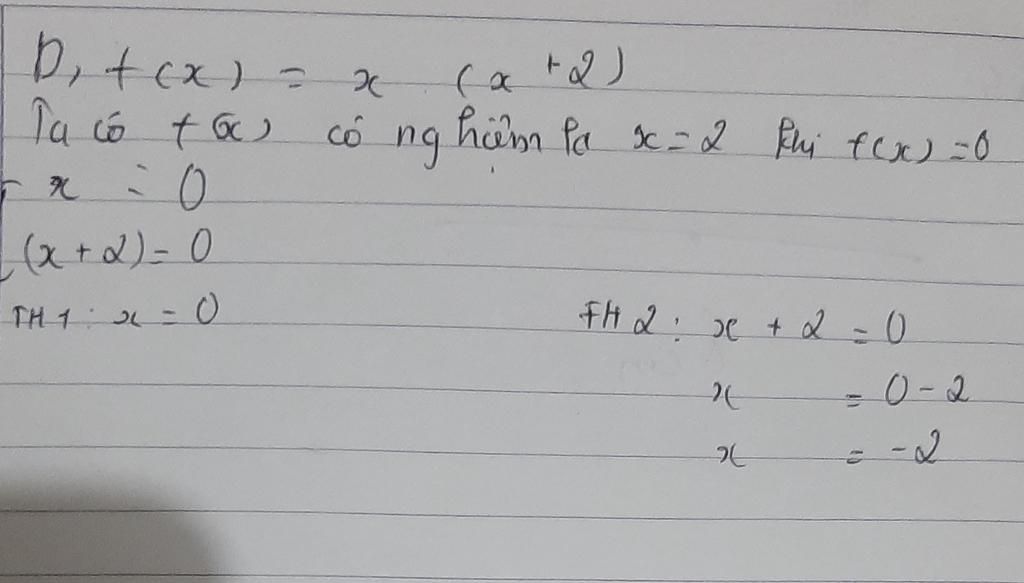 D, f(x) = x (x +2)
Ta có f(x) có nghiệm là x = 2 khi f(x) = 0
x = 0
(x + 2) = 0
TH 1 : x = 0 TH 2 : x + 2 = 0
x = 0 - 2
x = -2